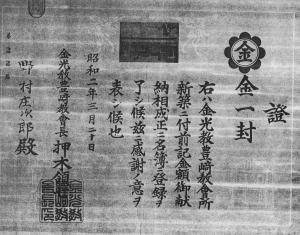 證
金
金一封
右ハ金光教豊﨑教會所
新築ニ付前記金額御献
納相成正ニ名簿ニ登録ヲ
了シ候茲ニ感謝ノ意ヲ
表シ候也
昭和二年三月二十日
金光教豊﨑教會長 押木
野村庄次郎殿